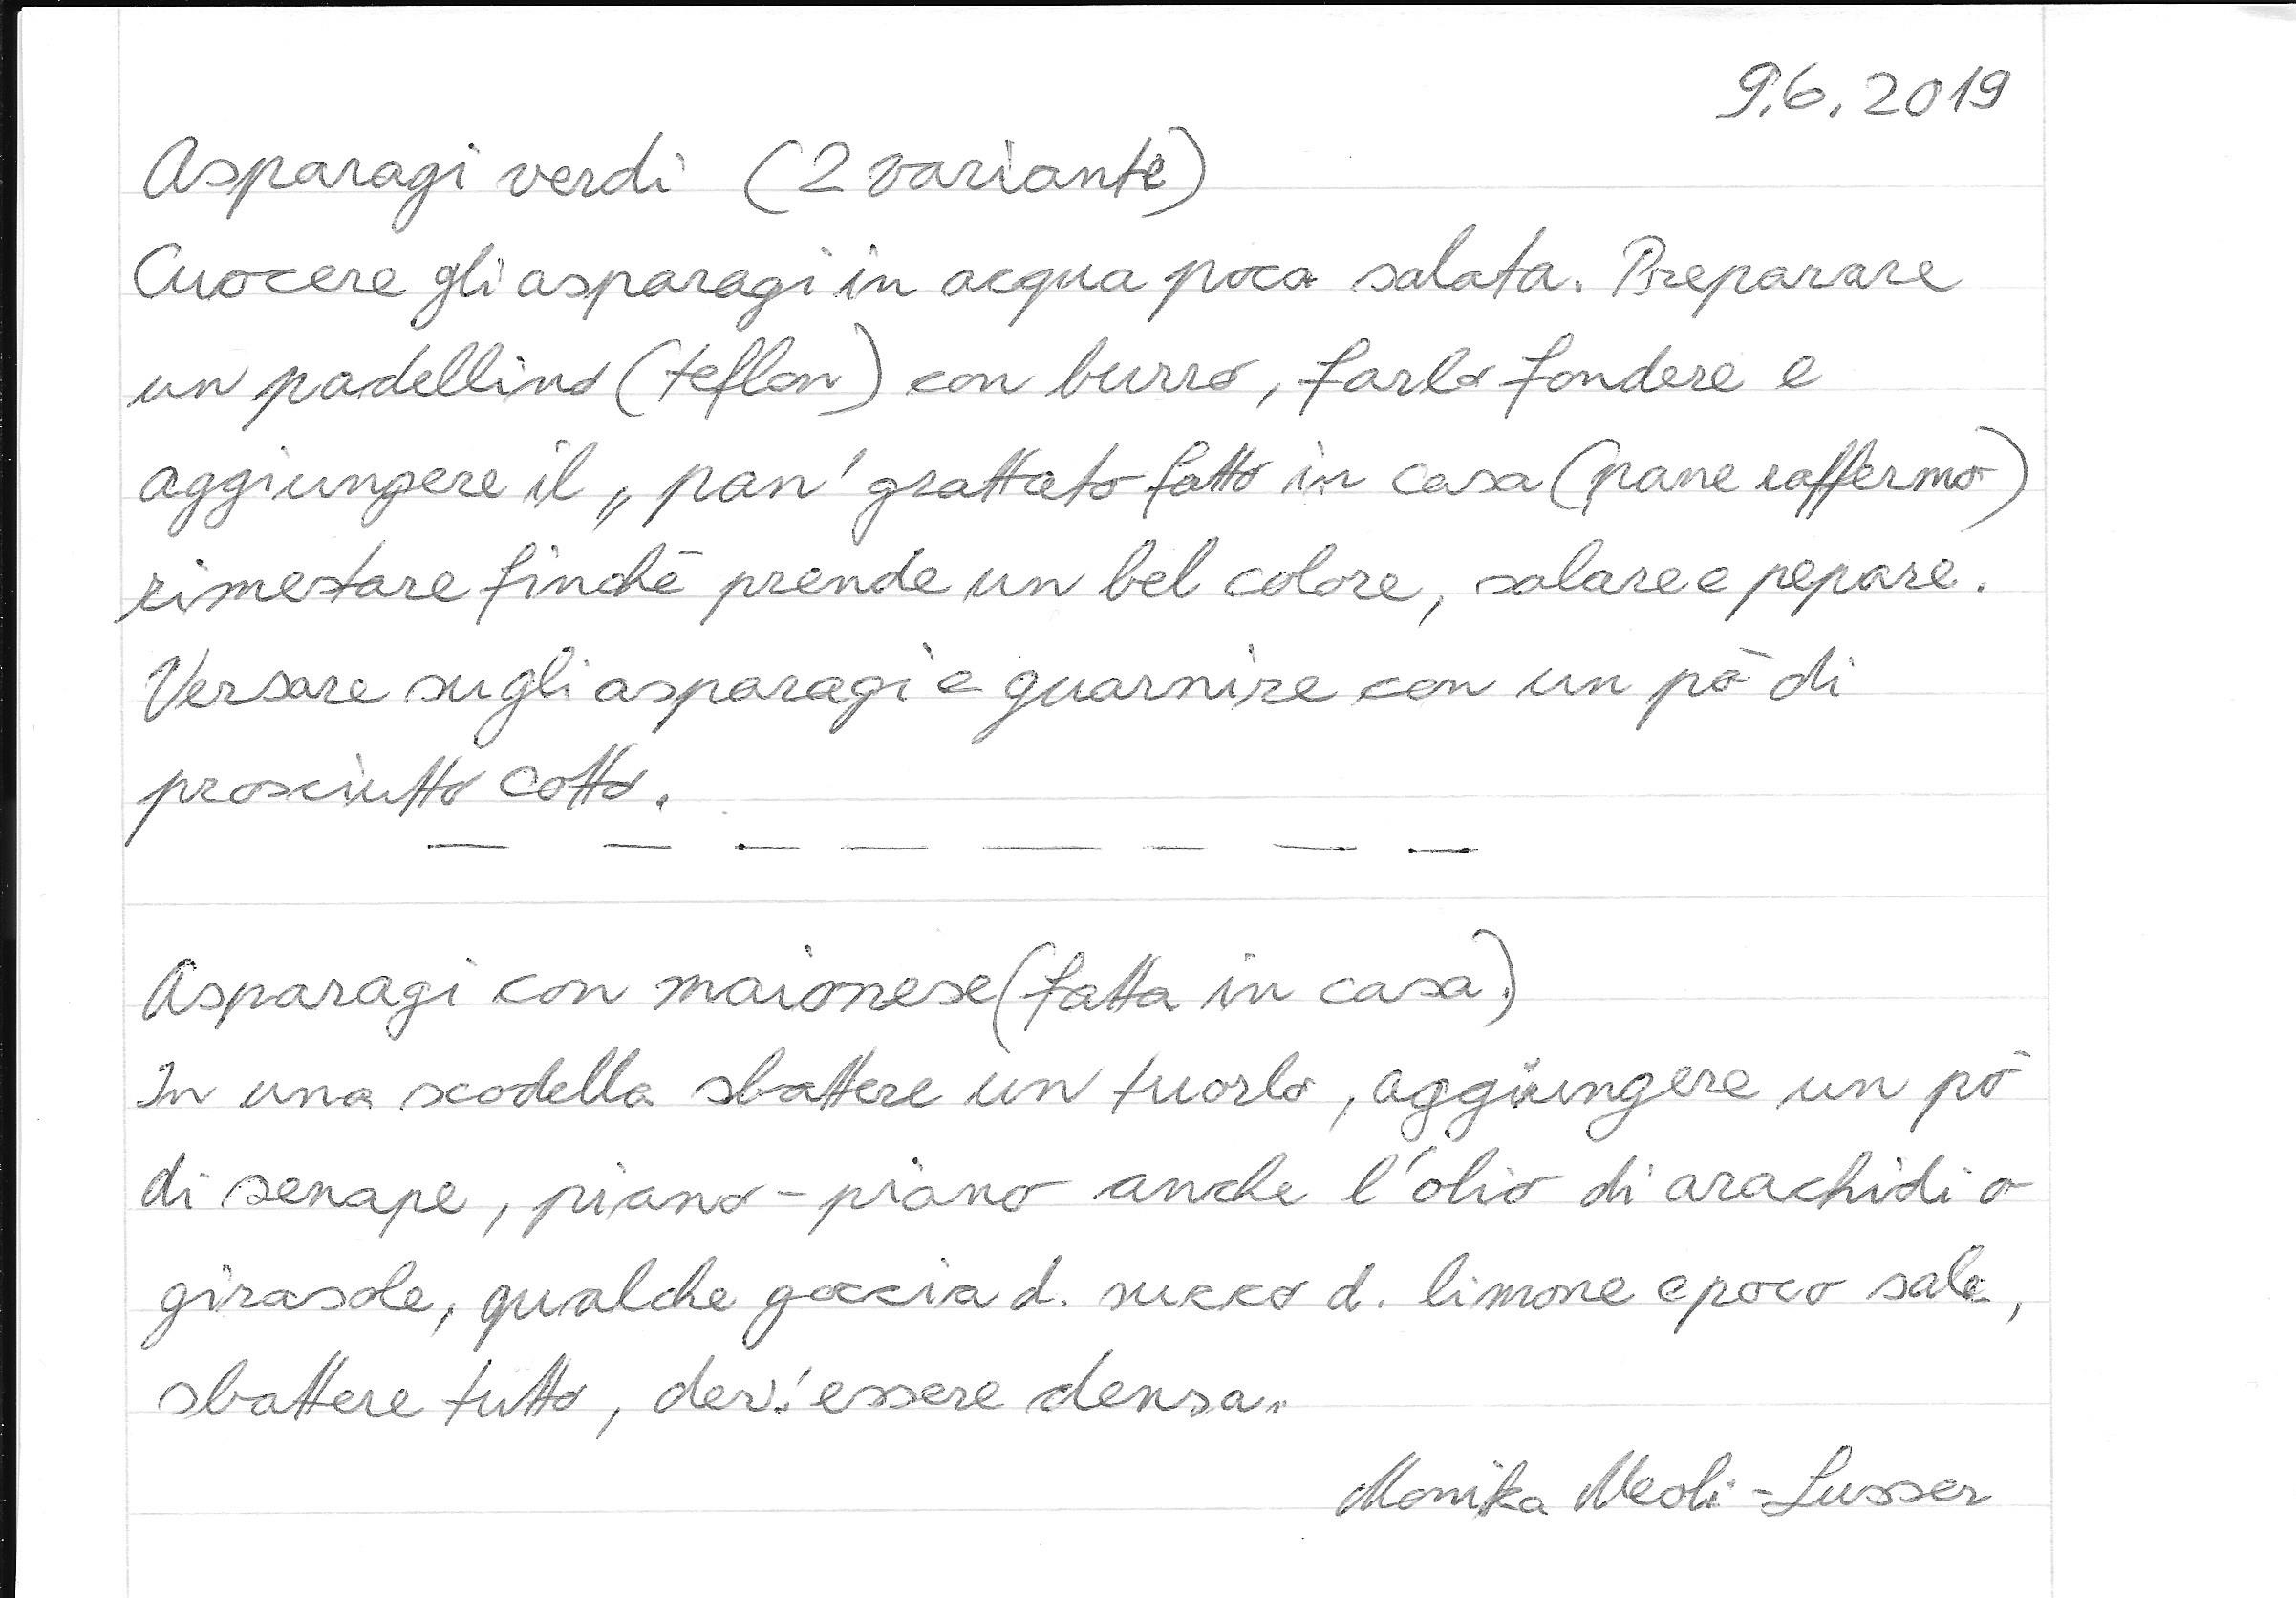 9.6.2019
Asparagi verdi (2 varianti)
Cuocere gli asparagi in acqua poca salata. Preparare
un padellino (teflon) con burro, farlo fondere e
aggiungere il „ pan' grattato fatto in casa (pane raffermo)
rimestare finchè prende un bel colore, salare e pepare.
Versare sugli asparagi e guarnire con un pò di
prosciutto cotto.
— — — — — — — —
Asparagi con maionese (fatta in casa)
In una scodella sbattere un tuorlo, aggiungere un pò
di senape, piano-piano anche l'olio di arachidi o
girasole, qualche goccia d. succo d. limone e poco sale,
sbattere tutto, dev'essere densa.
Monika Meoli-Lusser